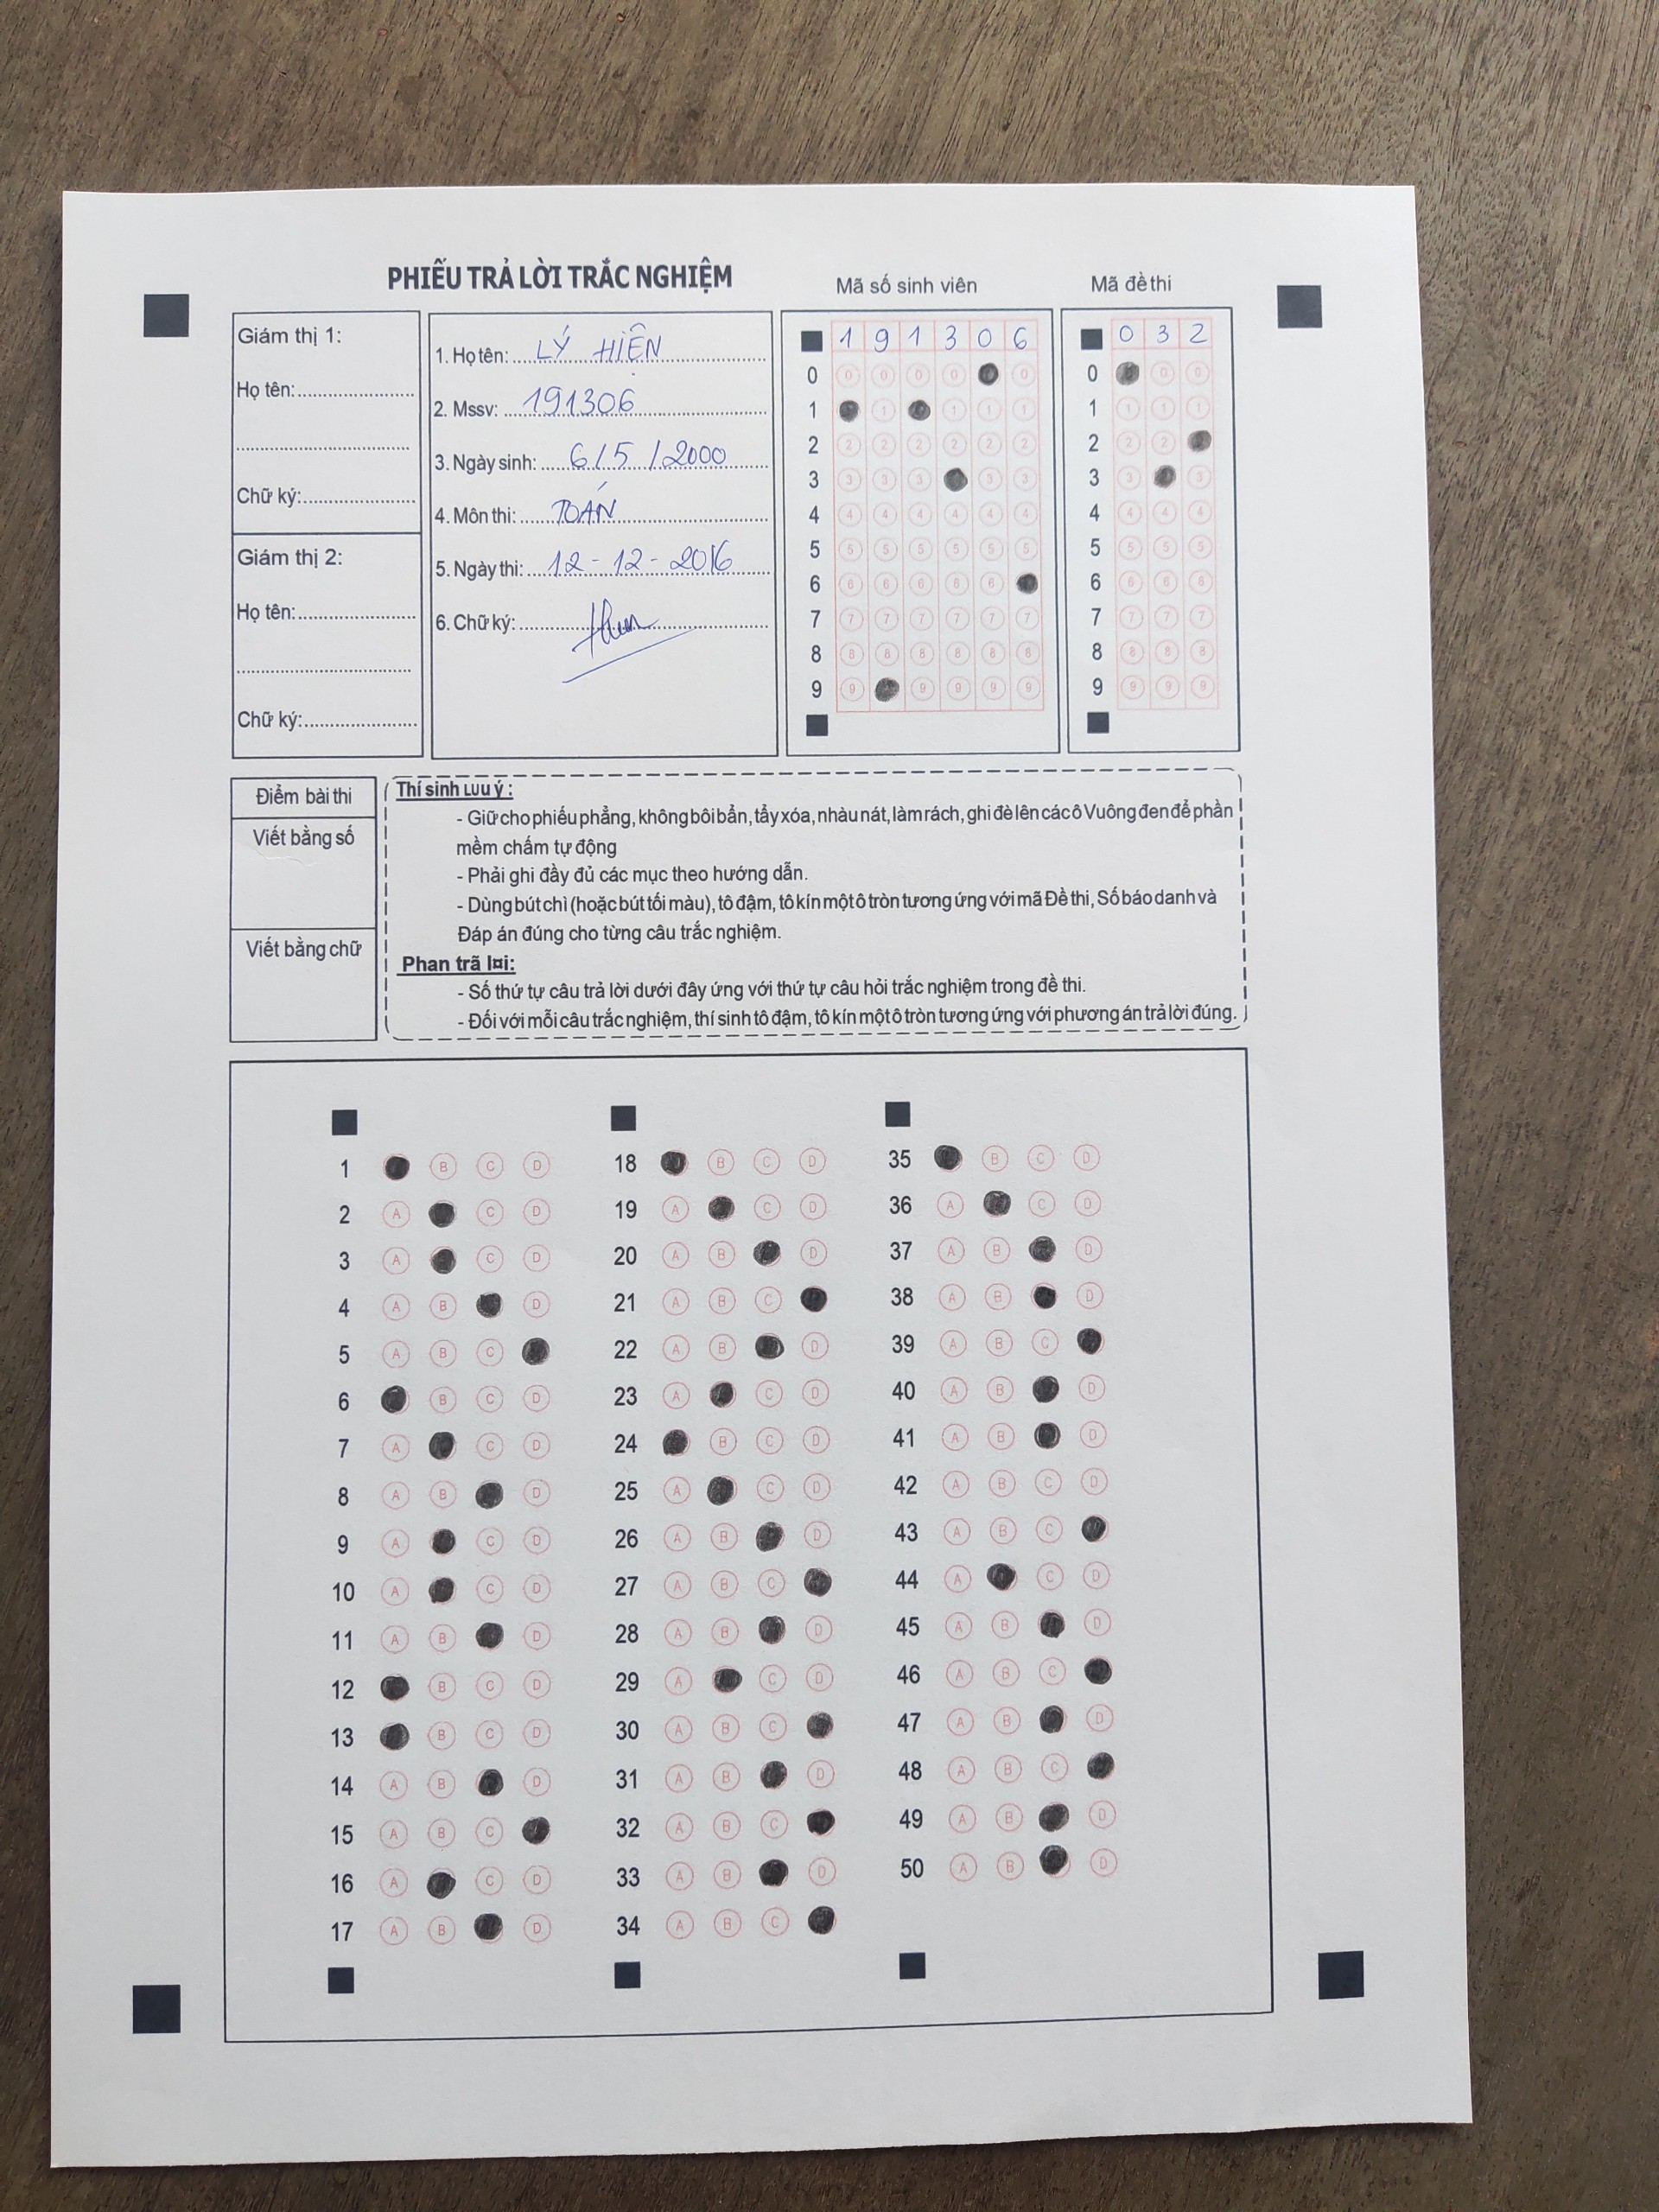 PHIẾU TRẢ LỜI TRẮC NGHIỆM
Mã số sinh viên
Mã đề thi
Giám thị 1:
Họ tên:
Chữ ký:
Giám thị 2:
Họ tên:
Chữ ký:
1. Họ tên: LÝ HIỆN
2. Mssv: 191306
3. Ngày sinh: 6/5/2000
4. Môn thi: TOÁN
5. Ngày thi: 12-12-2016
6. Chữ ký:
1 9 1 3 0 6
0 0 0 0 0 0
1 1 1 1 1
2 2 2 2 2 2 2
3 3 3 3 3 3
4 4 4 4 4 4 4
5 5 5 5 5 5 5
6 6 6 6 6 6
7 7 7 7 7 7 7
8 8 8 8 8 8 8
9 9 9 9 9 9
0 3 2
0 0 0
1 1 1 1
2 2 2
3 3 3
4 4 4 4
5 5 5 5
6 6 6 6
7 7 7 7
8 8 8 8
9 9 9 9
Điểm bài thi
Viết bằng số
Viết bằng chữ
Thí sinh LUu ý :
- Giữ cho phiếu phẳng, không bôi bẩn, tẩy xóa, nhàu nát, làm rách, ghi đè lên các ô Vuông đen để phần
mềm chấm tự động
- Phải ghi đầy đủ các mục theo hướng dẫn.
- Dùng bút chì (hoặc bút tối màu), tô đậm, tô kín một ô tròn tương ứng với mã Đề thi, Số báo danh và
Đáp án đúng cho từng câu trắc nghiệm.
Phan trã l¤i:
- Số thứ tự câu trả lời dưới đây ứng với thứ tự câu hỏi trắc nghiệm trong đề thi.
- Đối với mỗi câu trắc nghiệm, thí sinh tô đậm, tô kín một ô tròn tương ứng với phương án trả lời đúng.
1 B C D
2 A C D
3 A C D
4 A B D
5 A B C
6 B C D
7 A C D
8 A B D
9 A C D
10 A C D
11 A B D
12 B C D
13 B C D
14 A B D
15 A B C
16 A C D
17 A B D
18 B C D
19 A C D
20 A B D
21 A B C
22 A B D
23 A C D
24 B C D
25 A C D
26 A B D
27 A B C
28 A B D
29 A C D
30 A B C
31 A B D
32 A B C
33 A B D
34 A B C
35 B C D
36 A C D
37 A B D
38 A B D
39 A B C
40 A B D
41 A B D
42 A B C D
43 A B C
44 A C D
45 A B D
46 A B C
47 A B D
48 A B C
49 A B D
50 A B D